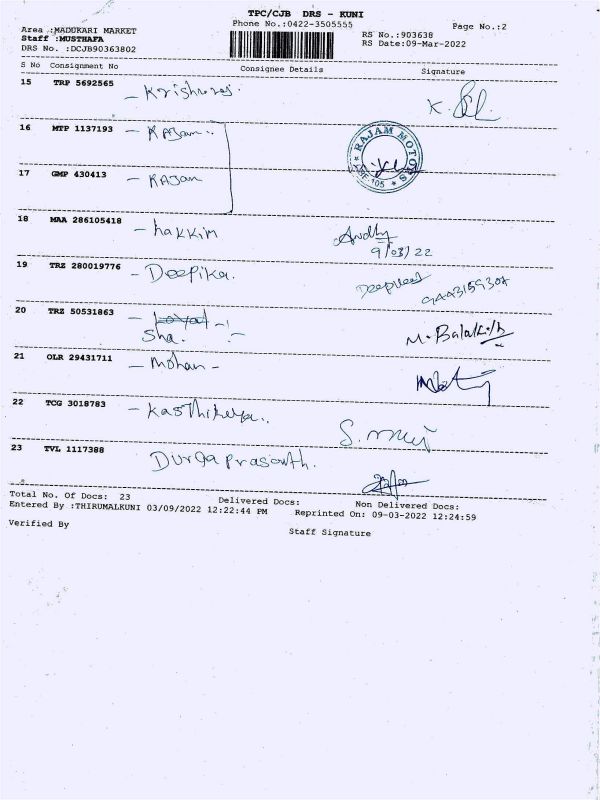 TPC/CJB DRS - KUNI
Phone No.:0422-3505555
Page No.:2
Area :MADUKARI MARKET
Staff :MUSTHAFA
DRS No. :DCJB90363802
RS No.:903638
RS Date:09-Mar-2022
S No Consignment No Consignee Details Signature
15 TRP 5692565
16 MTP 1137193 - RAJam
RAJAM MOTORS
17 GMP 430413 - RAJam
18 MAA 286105418 - hakkim
9/03/22
19 TRZ 280019776 - Deepika.
20 TRZ 50531863
Sha.
M. Balakish
21 OLR 29431711 - Mohan -
22 TCG 3018783
23 TVL 1117388
Durga prasanth.
Total No. Of Docs: 23 Delivered Docs: Non Delivered Docs:
Entered By :THIRUMALKUNI 03/09/2022 12:22:44 PM Reprinted On: 09-03-2022 12:24:59
Verified By Staff Signature